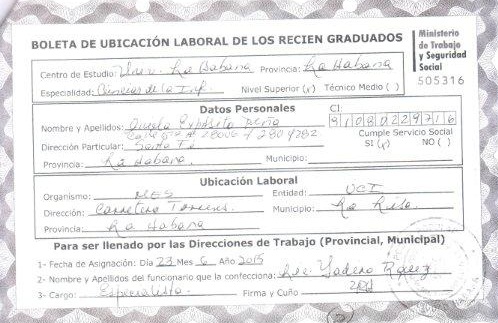 BOLETA DE UBICACIÓN LABORAL DE LOS RECIEN GRADUADOS
Ministerio de Trabajo y Seguridad Social
515316
Centro de Estudio: Univ La Habana Provincia: La Habana
Especialidad: Ciencias de la Inf. Nivel Superior (x) Técnico Medio ( )
Datos Personales
Nombre y Apellidos: Expósito Peña
CI:
Cumple Servicio Social
Dirección Particular: Santa Fe
SI (x) NO ( )
Provincia: La Habana Municipio:
Ubicación Laboral
Organismo: MES Entidad: UCI
Dirección: Carretera Municipio: La Lisa
Provincia: La Habana
Para ser llenado por las Direcciones de Trabajo (Provincial, Municipal)
1- Fecha de Asignación: Día 23 Mes 6 Año 2015
2- Nombre y Apellidos del funcionario que la confecciona:
3- Cargo: Especialista Firma y Cuño